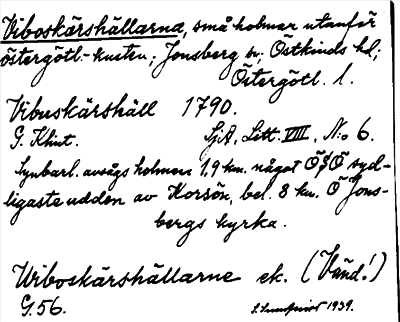 Viboskärshällarna, små holmar utanför
östergötl.-kusten; Jonsberg sn; Östkinds hd;
Östergötl. l.
Vibuskärshäll 1790.
G. Klint. SjA, Litt. VIII, N:o 6.
Synbarl. avsågs holmen 1,9 km. något Ö§Ö syd-
ligaste udden av Korsön, bel. 8 km. Ö Jons-
bergs kyrka.
Wiboskärshällarne ek. (Vänd!)
G. 56. 1939.